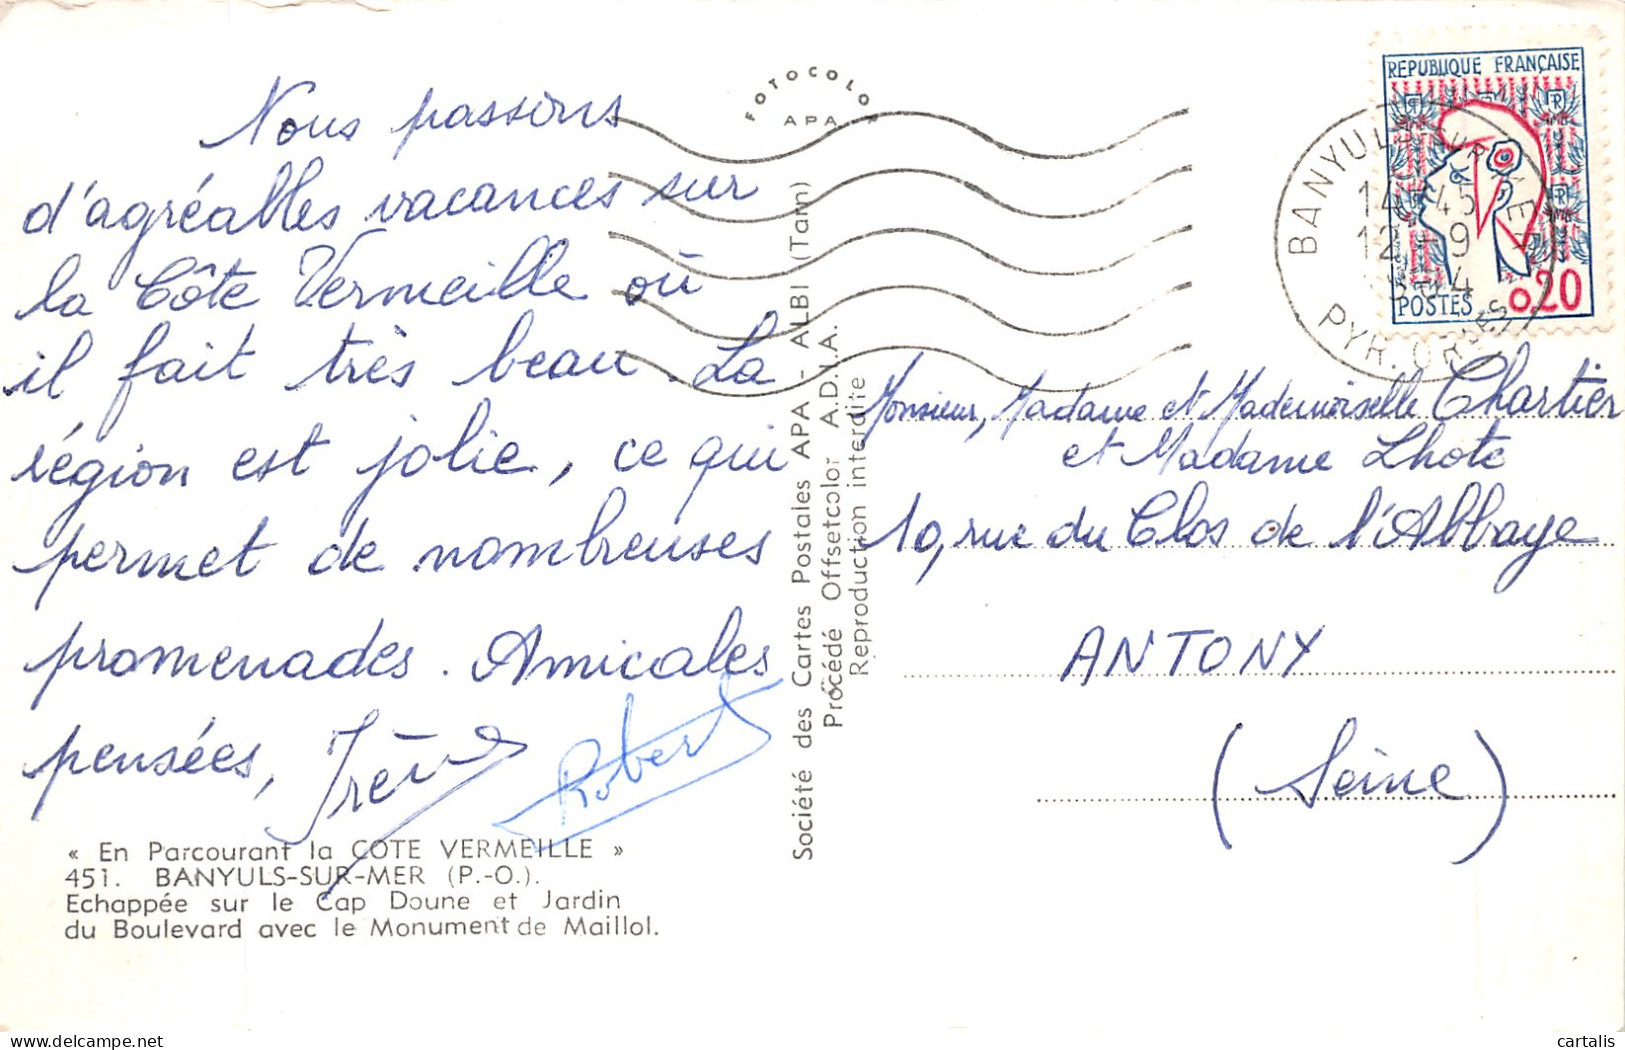 Nous passons
d'agréables vacances sur
la Côte Vermeille où
il fait très beau. La
région est jolie, ce qui
permet de nombreuses
promenades. Amicales
pensées, Irène Robert
« En Parcourant la COTE VERMEILLE »
451. BANYULS-SUR-MER (P.-O.).
Echappée sur le Cap Doune et Jardin
du Boulevard avec le Monument de Maillol.
FOTOCOLOR
APA
Société des Cartes Postales APA - ALBI (Tarn)
Procédé Offsetcolor A.D.I.A.
Reproduction interdite
REPUBLIQUE FRANÇAISE
POSTES 0,20
BANYULS SUR MER
14H45
12-9
PYR. ORLES
Monsieur, Madame et Mademoiselle Chartier
et Madame Lhote
10, rue du Clos de l'Abbaye
ANTONY
(Seine)
cartalis